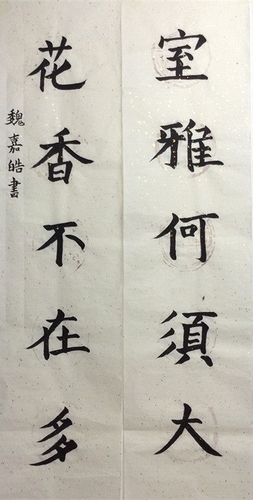 室雅何須大
花香不在多
魏嘉皓書